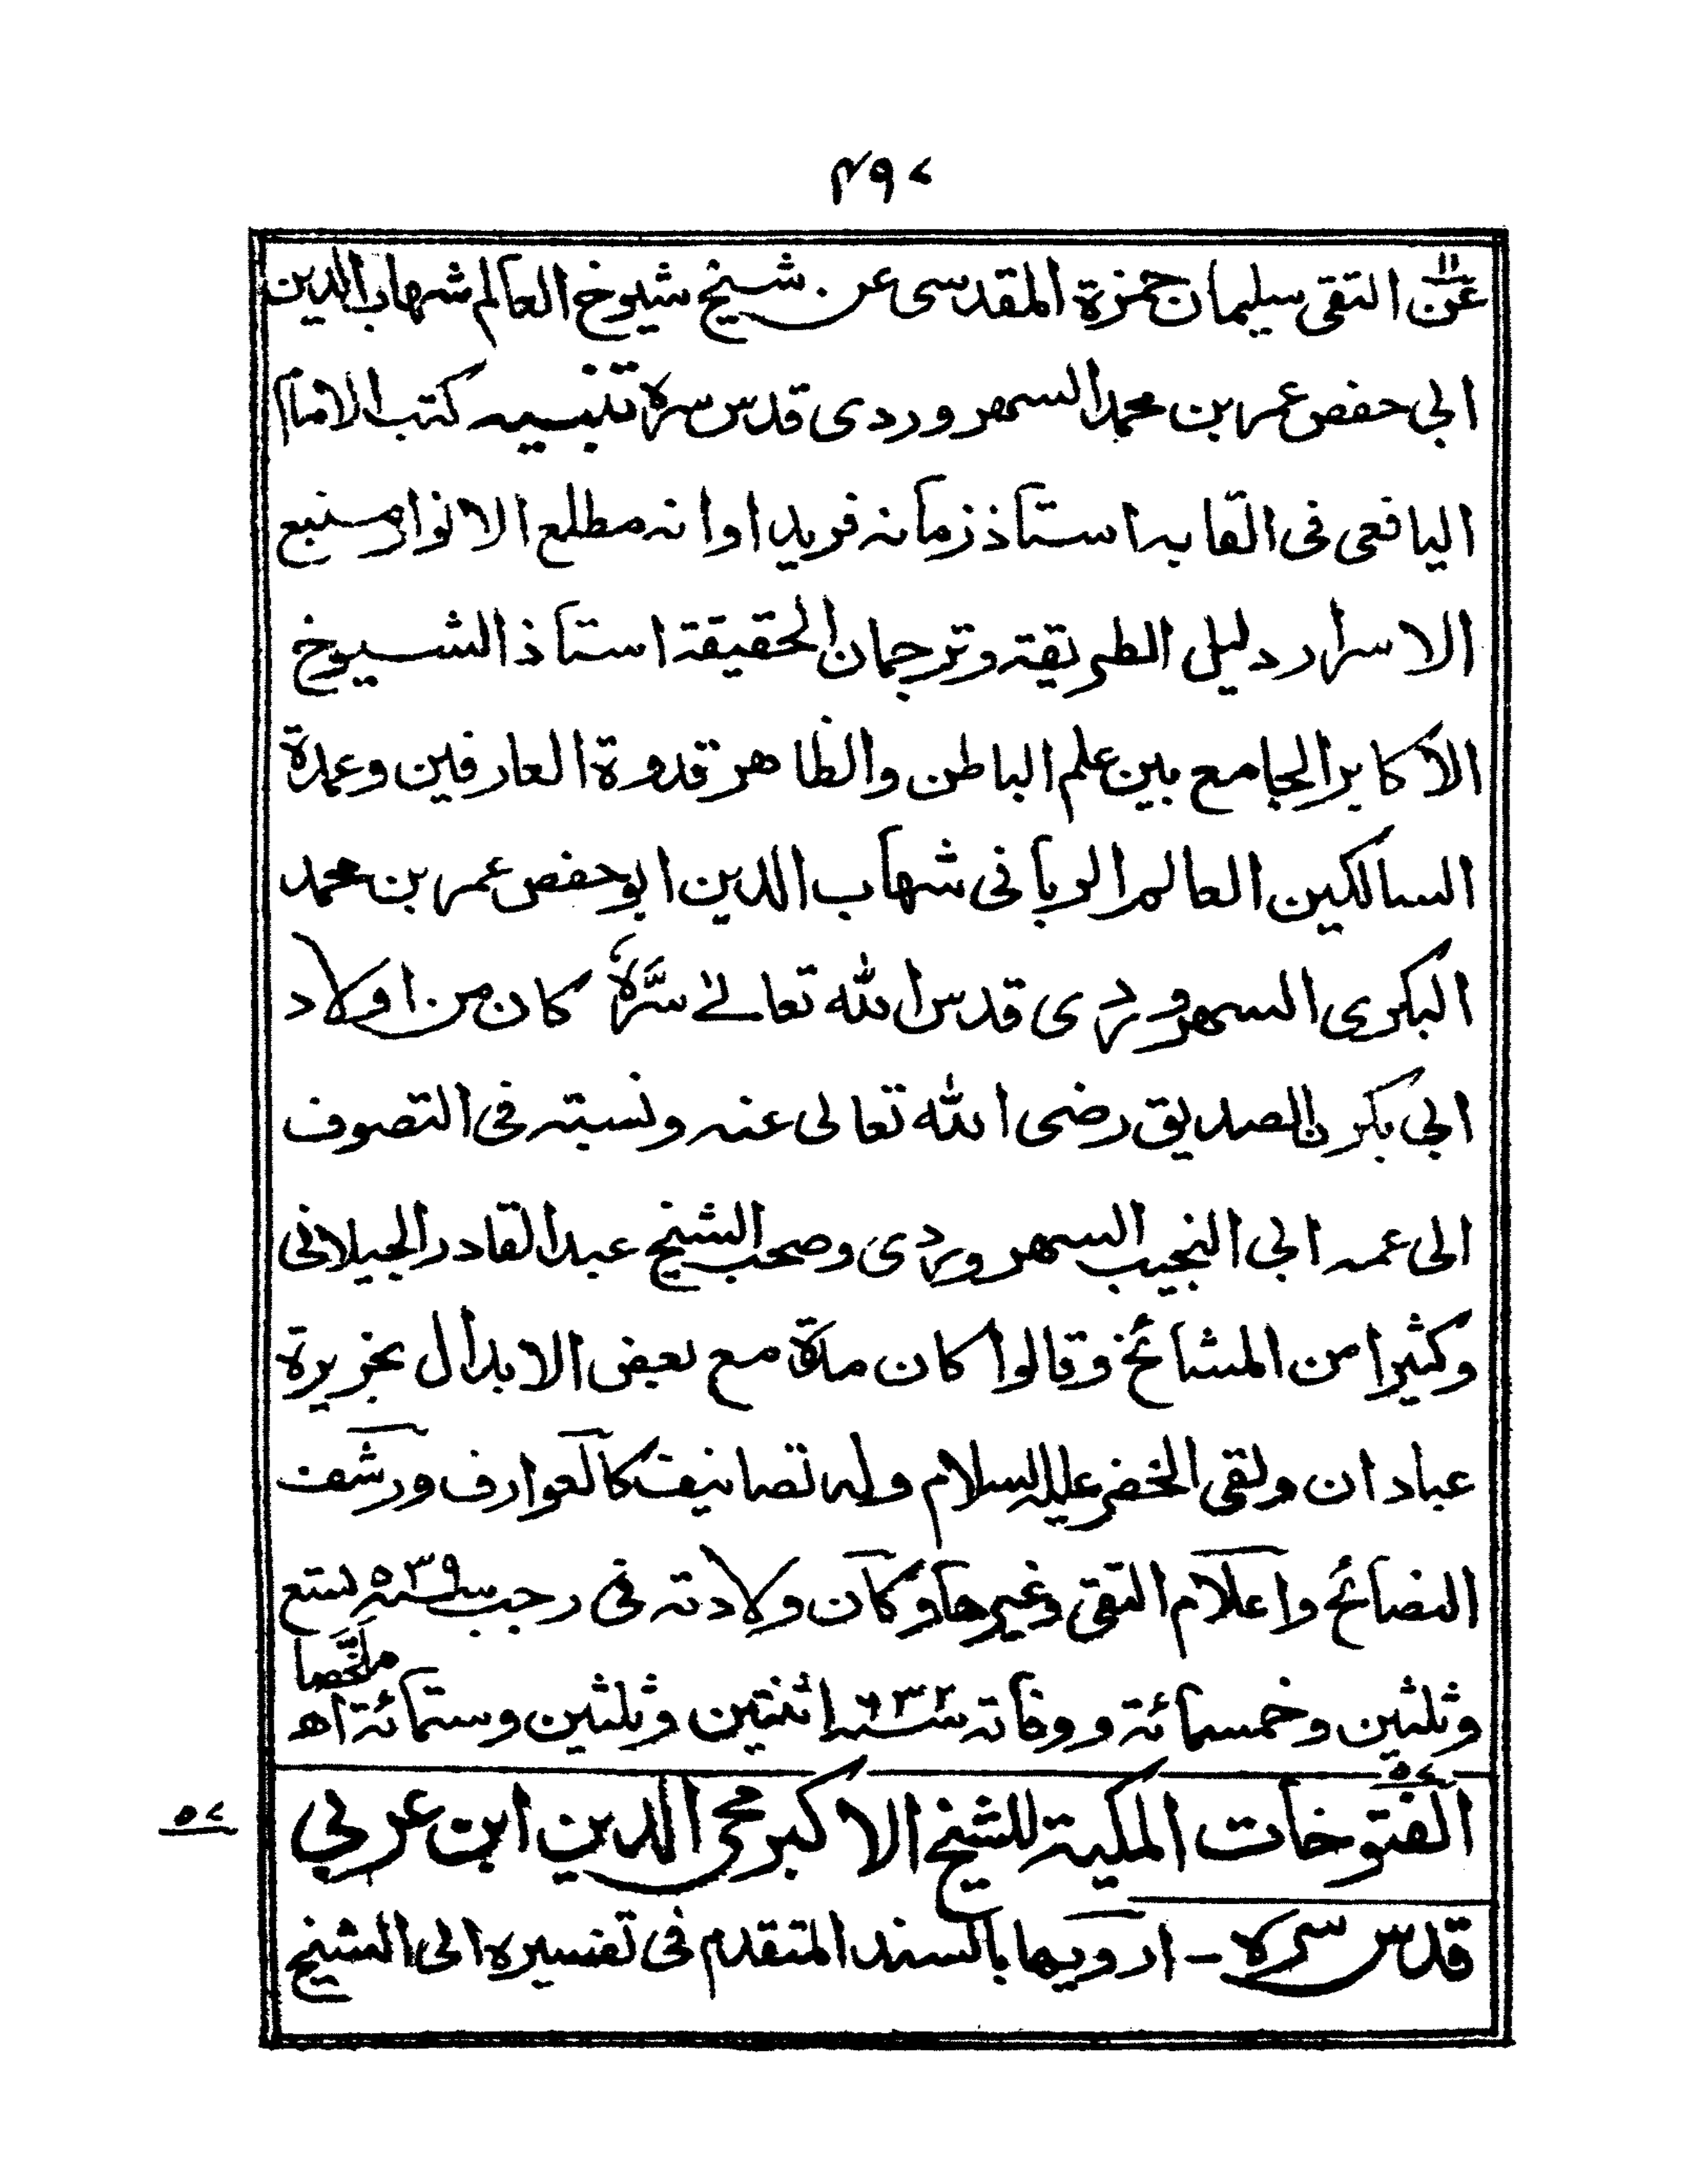 ٤٩٧
عن التقى سليمان حمزة المقدسى عن شيخ شيوخ العالم شهاب الدين
ابى حفص عمر بن محمد السهروردى قدس سره تنبيه كتب الامام
اليافعى فى القابه استاذ زمانه فريد اوانه مطلع الانوار منبع
الاسرار دليل الطريقة وترجمان الحقيقة استاذ الشيوخ
الاكابر الجامع بين علم الباطن والظاهر قدوة العارفين وعمدة
السالكين العالم الربانى شهاب الدين ابو حفص عمر بن محمد
البكرى السهروردى قدس الله تعالے سرَّہٗ كان من اولاد
ابى بكر ن الصديق رضى الله تعالى عنه ونسبته فى التصوف
الى عمه ابى النجيب السهروردى وصحب الشيخ عبد القادر الجيلانى
وكثيرا من المشائخ وقالوا كان مدة مع بعض الابدال بجزيرة
عبادان ولقى الخضر عليه السلام وله تصانيف كالعوارف ورشف
النصائح واعلام التقى وغيرها وكان ولادته فى رجب سنه ٥٣٩ تسع
وثلثين وخمسمائة ووفاته سنه ٦٣٢ اثنتين وثلثين وستمائة اھ ملخَّصا
٥٧ الفتوحات المكية للشيخ الاكبر محى الدين ابن عربى ٥٧
قدس سره - ارويها بالسند المتقدم فى تفسيره الى الشيخ